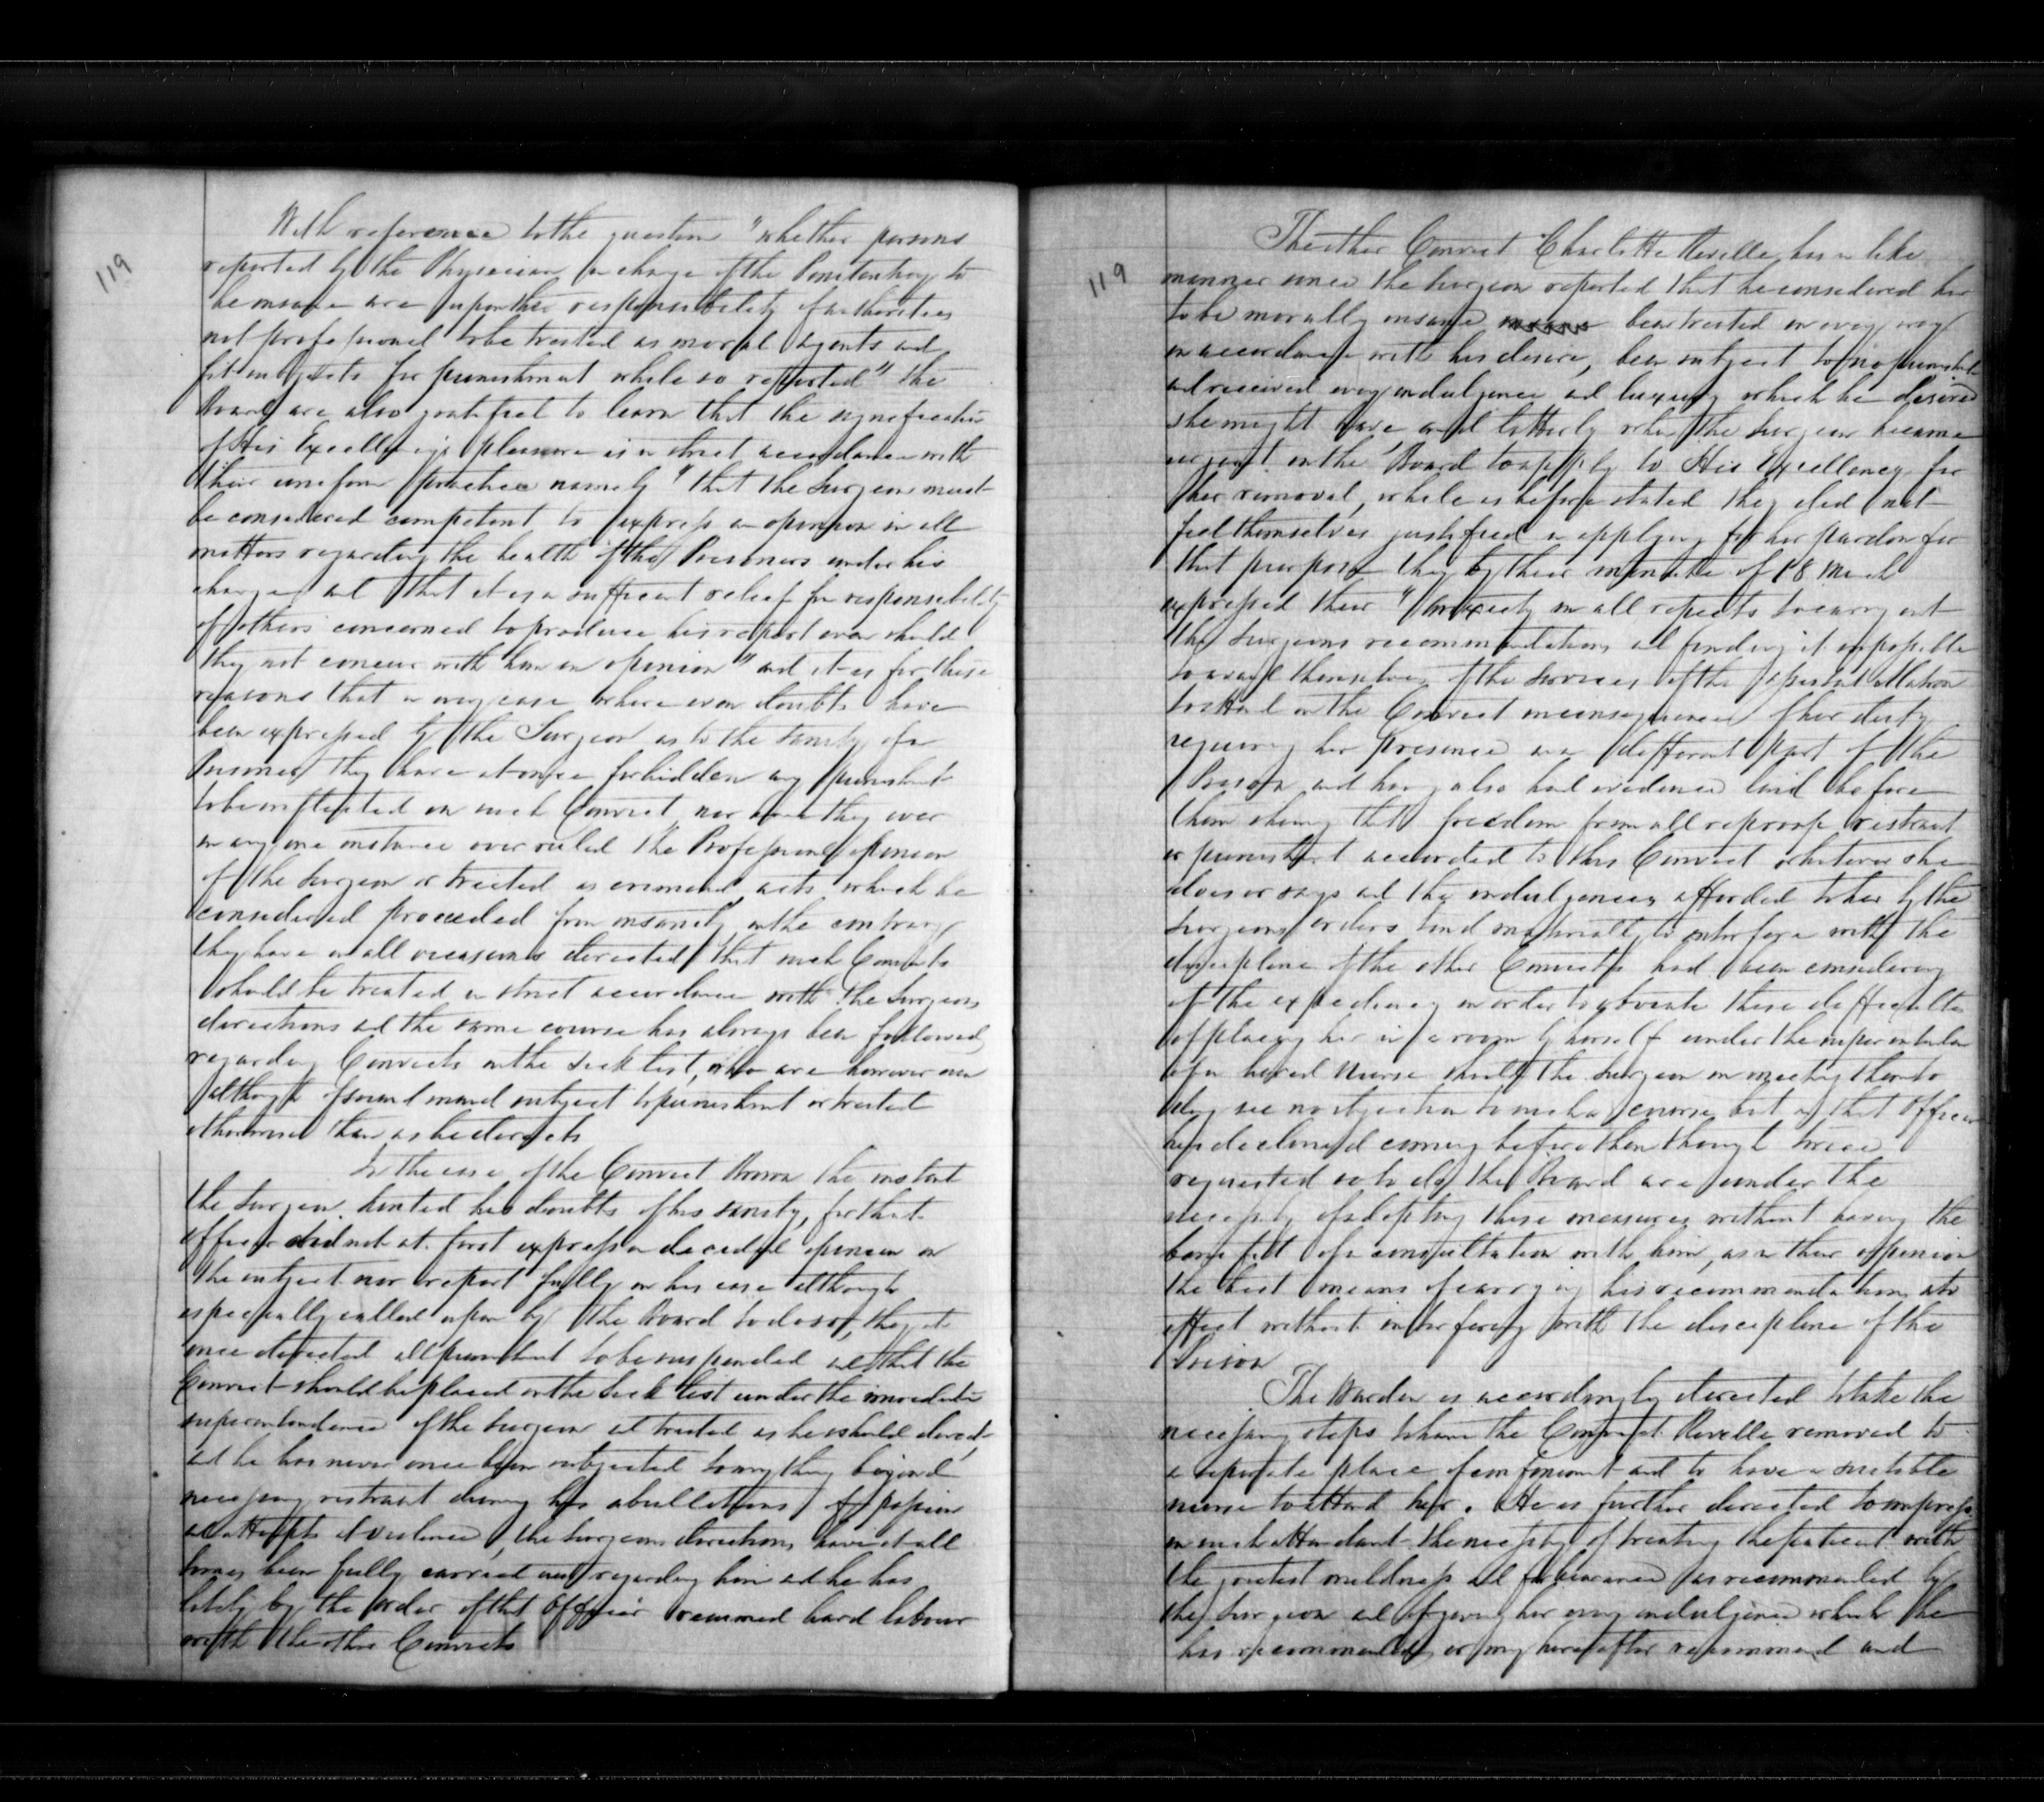 119
With reference to the question "whether persons
reported by the Physician in charge of the Penitentiary to
be insane are upon the responsibility of authorities
not professional to be treated as moral agents and
fit subjects for punishment while so reported" the
Board are also gratified to learn that the signification
of His Excellency's pleasure is in strict accordance with
their uniform practice namely "that the Surgeon must
be considered competent to express an opinion in all
matters regarding the health of the Prisoners under his
charge and that it is a sufficient relief from responsibility
of others concerned to produce his report even should
they not concur with him in opinion" and it is for these
reasons that in any case where even doubts have
been expressed by the Surgeon as to the sanity of a
Prisoner they have at once forbidden any punishment
to be inflicted on such Convict nor have they ever
in any one instance over ruled the Professional opinion
of the Surgeon or treated as criminal acts which he
considered proceeded from insanity on the contrary
they have on all occasions directed that such Convicts
should be treated in strict accordance with the Surgeons
directions and the same course has always been followed
regarding Convicts on the Sick list, who are however never
although of sound mind subject to punishment or treated
otherwise than as he directs
In the case of the Convict Brown the instant
the Surgeon hinted his doubts of his sanity, for that
officer did not at first express a decided opinion on
the subject nor report fully on his case although
especially called upon by the Board to do so, they at
once directed all punishment to be suspended and that the
Convict should be placed on the Sick list under the immediate
superintendence of the Surgeon and treated as he should direct,
and he has never once been subjected to any thing beyond
necessary restraint during his ebullitions of passion
or attempts at violence, the Surgeons directions have at all
times been fully carried out regarding him and he has
lately by the order of that Officer resumed hard labour
with the other Convicts
119
The other Convict Charlotte Reveille has in like
manner since the Surgeon reported that he considered her
to be morally insane been treated in every way
in accordance with his desire, been subject to no punishment
and received every indulgence and luxury which he desired
she might have and latterly when the Surgeon became
urgent on the Board to apply to His Excellency for
her removal, while as before stated they did not
feel themselves justified in applying for her pardon for
that purpose they by their minute of 18 March
expressed their "anxiety in all respects to carry out
the Surgeons recommendations and finding it impossible
to avail themselves of the services of the Assistant Matron
to attend on the Convict in consequence of her duty
requiring her presence in a different part of the
Prison and having also had evidence laid before
them shewing that freedom from all reproof restraint
or punishment accorded to this Convict whatever she
does or says and the indulgences afforded to her by the
Surgeons orders tend materially to interfere with the
discipline of the other Convicts had been considering
of the expediency in order to obviate these difficulties
of placing her in a room by herself under the superintendence
of a hired Nurse should the Surgeon on meeting them to
day see no objection to such a course, but as that Officer
has declined coming before them though twice
requested so to do the Board are under the
necessity of adopting these measures without having the
benefit of a consultation with him, as in their oppinion
the best means of carrying his recommendations into
effect without interfering with the discipline of the
Prison
The Warden is accordingly directed to take the
necessary steps to have the Convict Reveille removed to
a separate place of confinement and to have a suitable
nurse to attend her. He is further directed to impress
on such attendant the necessity of treating the patient with
the greatest mildness and forbearance as recommended by
the Surgeon and of giving her every indulgence which he
has recommended or may hereafter recommend and